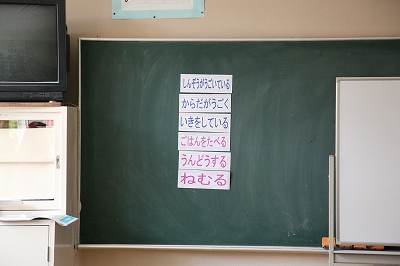 しんぞうがうごいている
からだがうごく
いきをしている
ごはんをたべる
うんどうする
ねむる